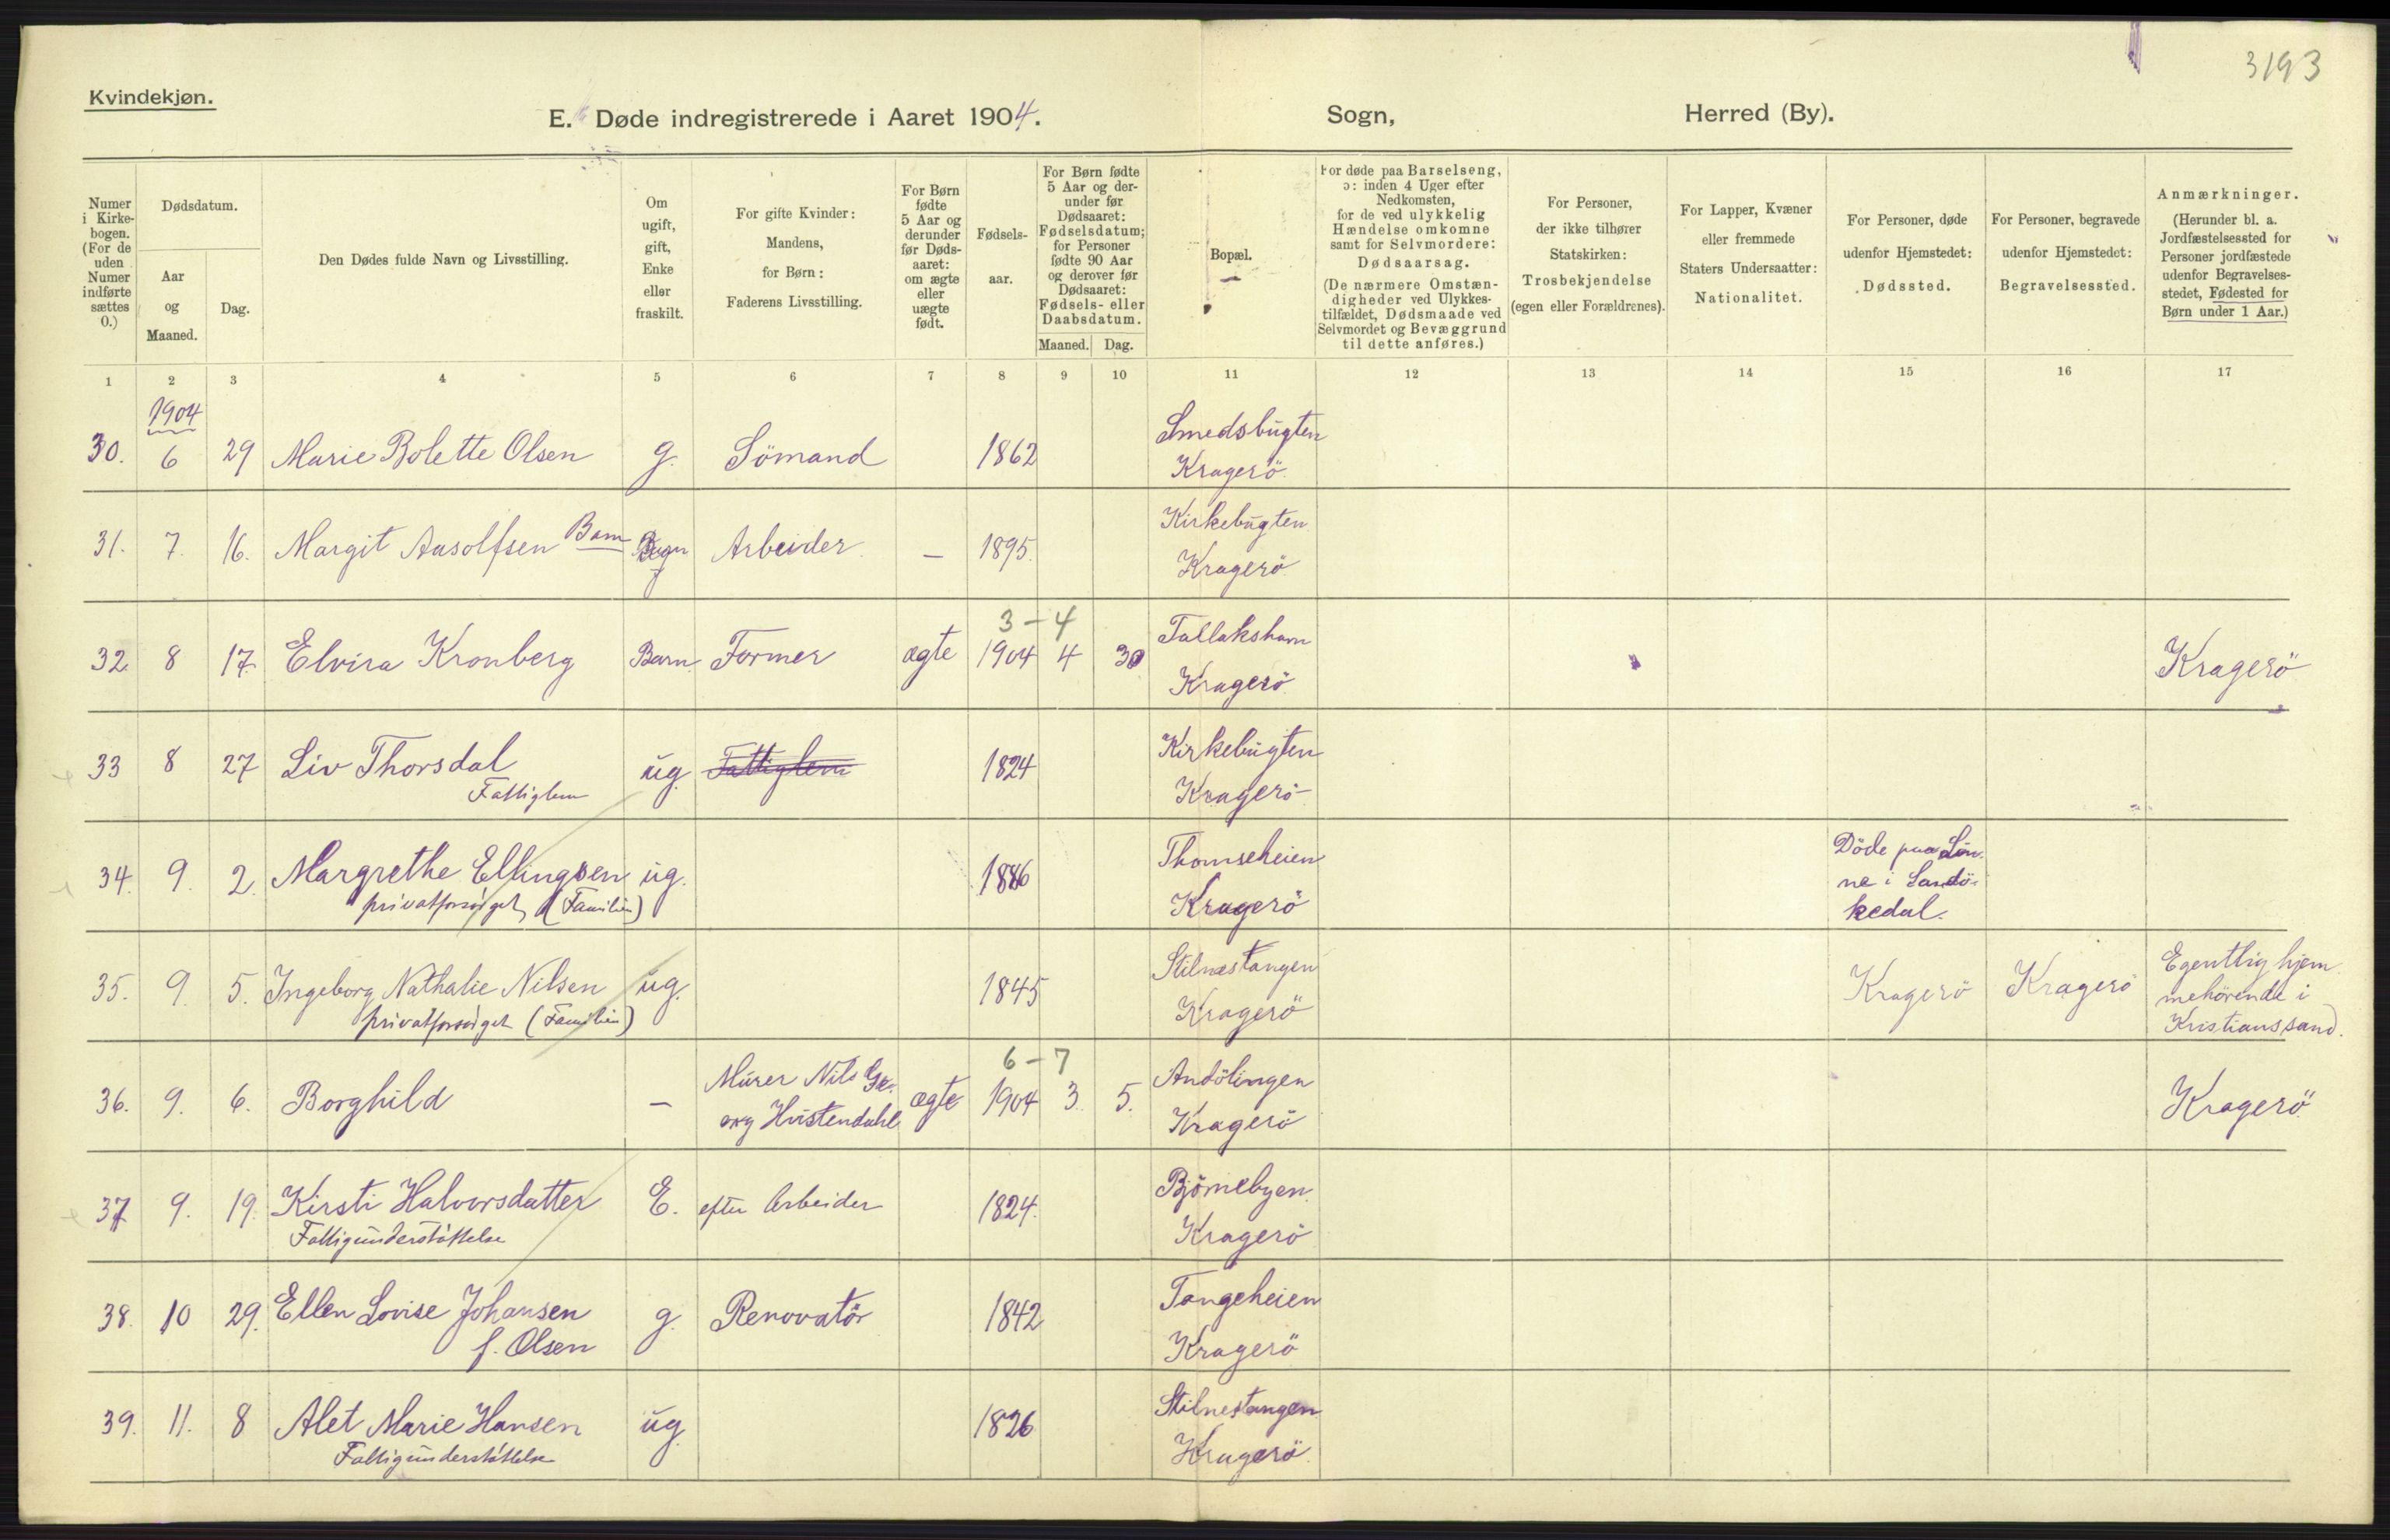 3193
Kvindekjøn.
E. Døde indregistrerede i Aaret 1904. Sogn, Herred (By).
Numer i Kirke-bogen. (For de uden Numer indførte sættes 0.)
Dødsdatum.
Aar og Maaned.
Dag.
Den Dødes fulde Navn og Livsstilling.
Om ugift, gift, Enke eller fraskilt.
For gifte Kvinder: Mandens, for Børn: Faderens Livsstilling.
For Børn fødte 5 Aar og derunder før Døds-aaret: om ægte eller uægte født.
Fødsels-aar.
For Børn fødte 5 Aar og der-under før Dødsaaret: Fødselsdatum; for Personer fødte 90 Aar og derover før Dødsaaret: Fødsels- eller Daabsdatum.
Maaned. Dag.
Bopæl.
For døde paa Barselseng, ɔ: inden 4 Uger efter Nedkomsten, for de ved ulykkelig Hændelse omkomne samt for Selvmordere: Dødsaarsag. (De nærmere Omstæn-digheder ved Ulykkes-tilfældet, Dødsmaade ved Selvmordet og Bevæggrund til dette anføres.)
For Personer, der ikke tilhører Statskirken: Trosbekjendelse (egen eller Forældrenes).
For Lapper, Kvæner eller fremmede Staters Undersaatter: Nationalitet.
For Personer, døde udenfor Hjemstedet: Dødssted.
For Personer, begravede udenfor Hjemstedet: Begravelsessted.
Anmærkninger. (Herunder bl. a. Jordfæstelsessted for Personer jordfæstede udenfor Begravelses-stedet, Fødested for Børn under 1 Aar.)
1 2 3 4 5 6 7 8 9 10 11 12 13 14 15 16 17
1904
30. 6 29 Marie Bolette Olsen g. Sömand 1862 Smedsbugten
Kragerö.
31. 7. 16. Margit Aasolfsen Barn Arbeider. – 1895. Kirkebugten
Kragerö
3–4
32 8 17. Elvira Kronberg Barn Former ægte 1904 4 30 Tallakshavn
Kragerö Kragerö
33 8 27 Liv Thorsdal ug. Fattiglem 1824 Kirkebugten
Fattiglem Kragerö
34. 9. 2. Margrethe Ellingsen ug. 1886 Thomseheien
privatforsörget (Familien) Kragerö
Döde paa Lön
ne i Sandö
kedal.
35. 9. 5. Ingeborg Nathalie Nilsen ug. 1845 Stilnestangen
privatforsörget (Familien) Kragerö Kragerö Kragerö
Egentlig hjem
mehörende i
Kristianssand.
6–7
36. 9. 6. Borghild – Murer Nils Ge-
org Hustendahl ægte 1904 3. 5. Andölingen
Kragerö Kragerö
37 9. 19. Kirsti Halvorsdatter E. efter Arbeider 1824. Björnebyen.
Fattigunderstöttelse Kragerö
38. 10 29. Ellen Lovise Johansen g. Renovatör 1842 Tangeheien
f. Olsen Kragerö
39. 11. 8 Alet Marie Hansen ug. 1826 Stilnestangen
Fattigunderstöttelse Kragerö.